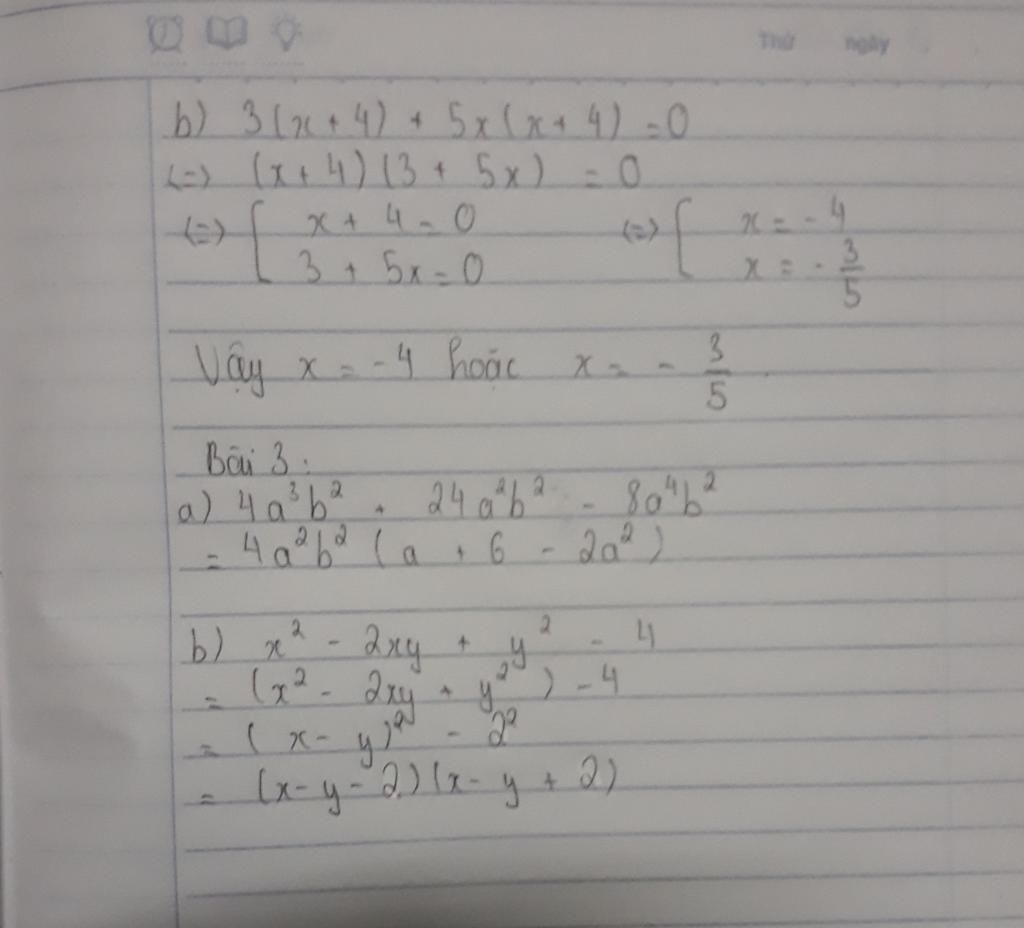 Thứ ngày
b) 3(x + 4) + 5x(x + 4) = 0
(=) (x + 4)(3 + 5x) = 0
(=) [ x + 4 = 0 (=) [ x = -4
3 + 5x = 0 x = - 3/5
Vậy x = -4 hoặc x = - 3/5.
Bài 3:
a) 4a³b² + 24a²b² - 8a⁴b²
= 4a²b² (a + 6 - 2a²)
b) x² - 2xy + y² - 4
= (x² - 2xy + y²) - 4
= (x - y)² - 2²
= (x - y - 2)(x - y + 2)